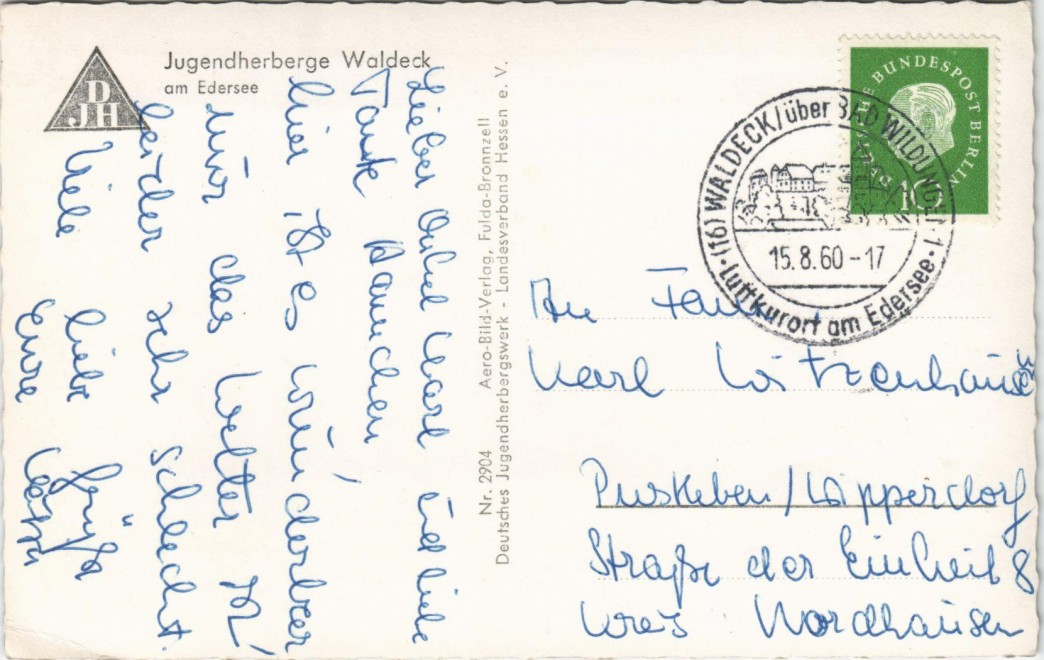 DJH
Jugendherberge Waldeck
am Edersee
Lieber Onkel Karl und liebe
Tante Hannchen
hier ist es wunderbar,
nur das Wetter ist
leider sehr schlecht.
Viele liebe Grüße
Eure
Nr. 2904 Aero-Bild-Verlag, Fulda-Bronnzell
Deutsches Jugendherbergswerk - Landesverband Hessen e. V.
DEUTSCHE BUNDESPOST BERLIN
10
(16) WALDECK/über BAD WILDUNGEN 1
15.8.60-17
Luftkurort am Edersee
An Fam.
Karl
Pustleben/Wipperdorf
Straße der Einheit 8
Kreis Nordhausen